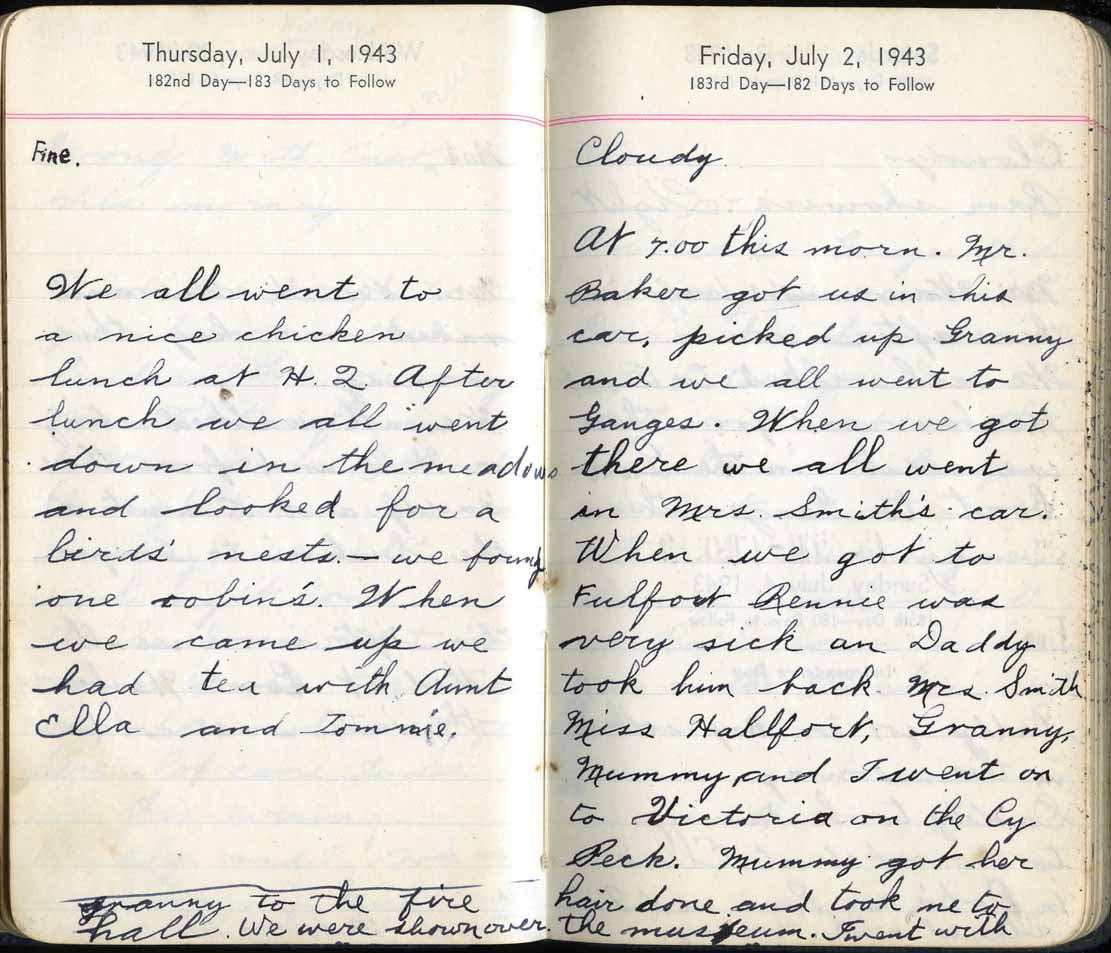 Thursday, July 1, 1943
182nd Day—183 Days to Follow
Fine.
We all went to
a nice chicken
lunch at H. Q. After
lunch we all went
down in the meadows
and looked for a
birds' nests. — we found
one robin's. When
we came up we
had tea with Aunt
Ella and Tommie.
Friday, July 2, 1943
183rd Day—182 Days to Follow
Cloudy
At 7.00 this morn. Mr.
Baker got us in his
car, picked up Granny
and we all went to
Ganges. When we got
there we all went
in Mrs. Smith's car.
When we got to
Fulfort Rennie was
very sick an Daddy
took him back. Mrs. Smith
Miss Hallfort, Granny,
Mummy, and I went on
to Victoria on the Cy
Peck. Mummy got her
hair done and took me to
the museum. I went with
granny to the fire
hall. We were shown over.